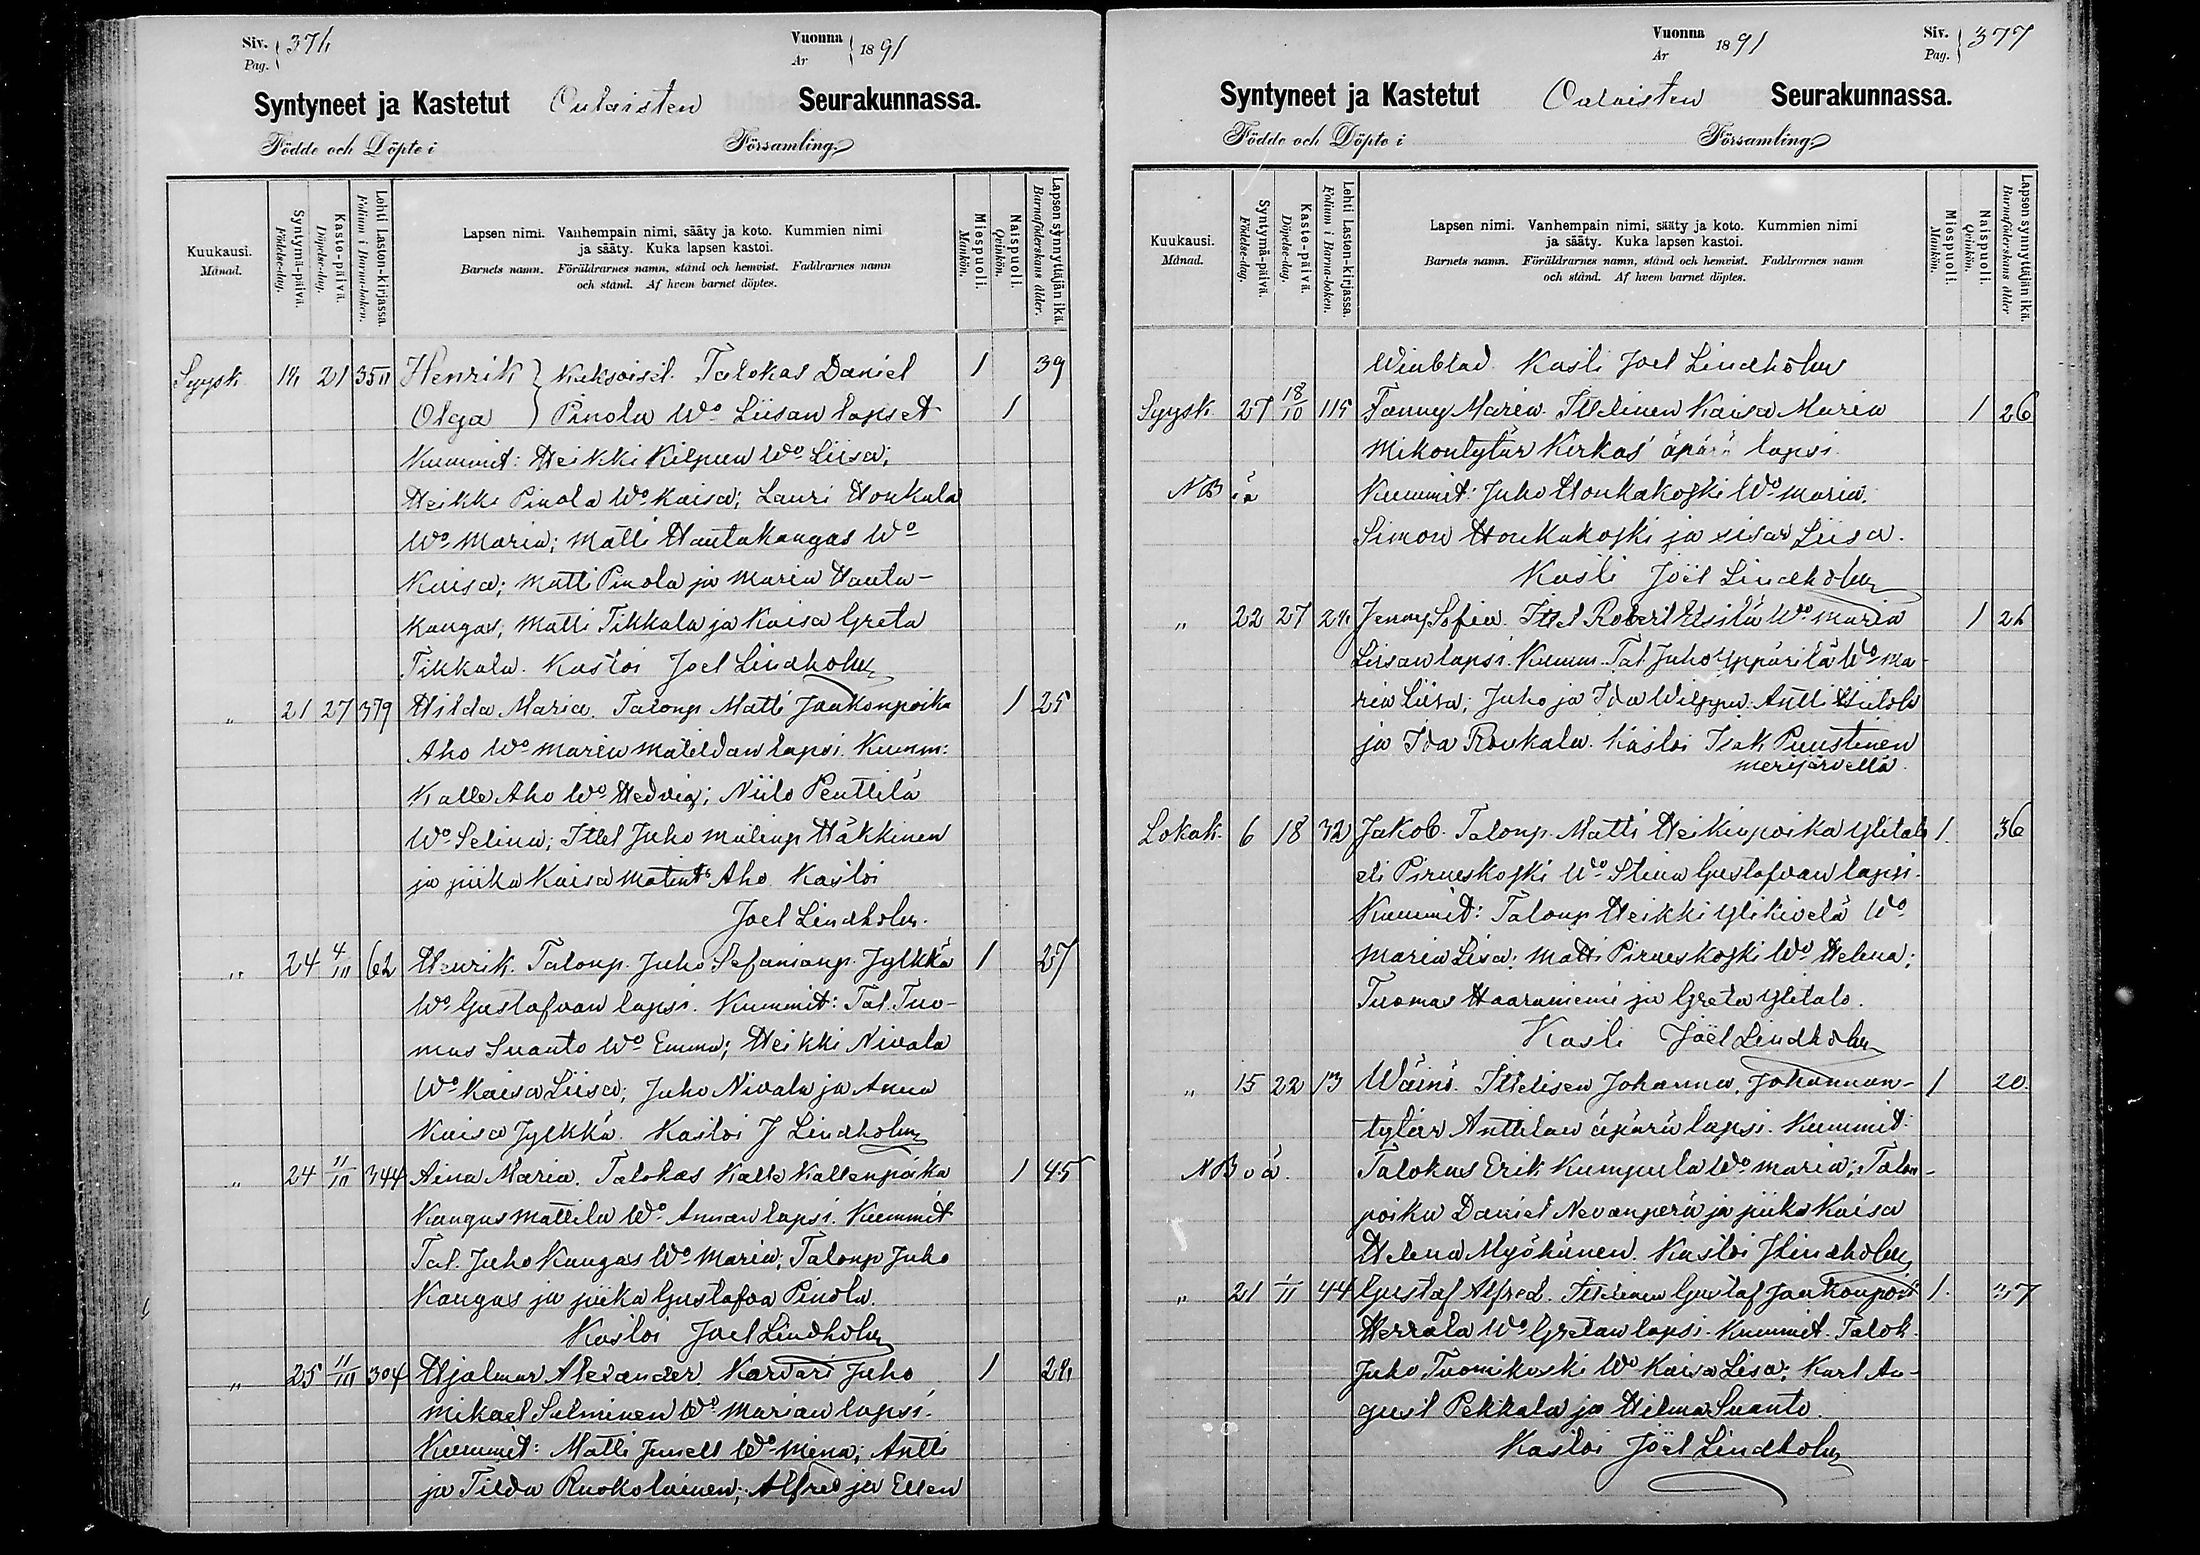 Siv. Pag. 376
Vuonna År 1891
Syntyneet ja Kastetut Oulaisten Seurakunnassa.
Födde och Döpte i Församling.
Kuukausi. Månad.
Syntymä-päivä. Födelse-dag.
Kasto-päivä. Döpelse-dag.
Lehti Lasten-kirjassa. Folium i Barna-boken.
Lapsen nimi. Vanhempain nimi, sääty ja koto. Kummien nimi
ja sääty. Kuka lapsen kastoi.
Barnets namn. Föräldrarnes namn, stånd och hemvist. Faddrarnes namn
och stånd. Af hvem barnet döptes.
Miespuoli. Mankön.
Naispuoli. Qvinkön.
Lapsen synnyttäjän ikä. Barnaföderskans ålder.
Syysk 21 Henrik } Kaksoiset. Talokas Daniel 1 39
Olga } Pinola Wo Liisan lapset 1
Kummit: Heikki Kilpua Wo Liisa;
Heikki Pinola Wo Kaisa; Lauri Honkala
Wo Maria; Matti Hautakangas Wo
Kaisa; Matti Pinola ja Maria Hauta-
kangas; Matti Tikkala ja Kaisa Greta
Tikkala. Kastoi Joel Lindholm
" 21 27 379 Hilda Maria. Talonp Matti Jaakonpoika 1 25
Aho Wo Maria Matildan lapsi. Kumm:
Kalle Aho Wo Hedvig; Niilo Penttilä
Wo Selina; Ittel Juho Matinp Häkkinen
ja piika Kaisa Matint Aho. Kastoi
Joel Lindholm.
" 24 4/10 62 Henrik. Talonp. Juho Sefanianp. Jylkkä 1 27
Wo Gustafvan lapsi. Kummit: Tal. Tuo-
mas Suanto Wo Emma; Heikki Nivala
Wo Kaisa Liisa; Juho Nivala ja Anna
Kaisa Jylkkä. Kastoi J Lindholm
" 24 11/10 344 Aina Maria. Talokas Kalle Kallenpoika 1 45
Kangas Mattila Wo Annan lapsi. Kummit
Tal. Juho Kangas Wo Maria; Talonp Juho
Kangas ja piika Gustafva Pinola.
Kastoi Joel Lindholm
" 25 11/10 304 Hjalmar Alexander. Karvari Juho 1
Mikael Salminen Wo Marian lapsi.
Kummit: Matti Junell Wo Mina; Antti
ja Tilda Ruokolainen; Alfred ja Ellen
Vuonna År 1891
Siv. Pag. 377
Syntyneet ja Kastetut Oulaisten Seurakunnassa.
Födde och Döpte i Församling.
Kuukausi. Månad.
Syntymä-päivä. Födelse-dag.
Kasto-päivä. Döpelse-dag.
Lehti Lasten-kirjassa. Folium i Barna-boken.
Lapsen nimi. Vanhempain nimi, sääty ja koto. Kummien nimi
ja sääty. Kuka lapsen kastoi.
Barnets namn. Föräldrarnes namn, stånd och hemvist. Faddrarnes namn
och stånd. Af hvem barnet döptes.
Miespuoli. Mankön.
Naispuoli. Qvinkön.
Lapsen synnyttäjän ikä. Barnaföderskans ålder
Winblad. Kasti Joel Lindholm
Syysk 27 18/10 115 Fanny Maria. Ittelinen Kaisa Maria 1 26
Mikontytär Kirkas' äpärä lapsi.
NB Kummit: Juho Honkakoski Wo Maria.
Simon Honkakoski ja sisar Liisa.
Kasti Joël Lindholm
" 22 27 Jenny Sofia. Ittel Robert Etsilä Wo Maria 1
Liisan lapsi. Kumm. Tal Juho Yppärilä Wo Ma-
ria Liisa; Juho ja Ida Wilppu. Antti
ja Ida Roukala. Kastoi Isak Puustinen
Merijärvellä.
Lokak. 6 18 32 Jakob. Talonp. Matti Heikinpoika Ylitalo 1. 36
eli Pirneskoski Wo Stina Gustafvan lapsi.
Kummit: Talonp Heikki Ylikivelä Wo
Maria Lisa; Matti Pirneskoski Wo Helena;
Tuomas Haaraniemi ja Greta Ylitalo.
Kasti Joël Lindholm
" 15 22 13 Wäinö. Ittelisen Johanna, Johannan- 1 20.
tytär Anttilan äpärä lapsi. Kummit:
NB Talokas Erik Kumpula Wo Maria; Talon-
poika Daniel Nevanperä ja piika Kaisa
Helena Myökänen. Kastoi J Lindholm
" 21 1/11 44 Gustaf Alfred. Ittelinen Gustaf Jaakonpoik 1. 37
Herrala Wo Gretan lapsi. Kummit. Talok.
Juho Tuomikoski Wo Kaisa Lisa; Karl Au-
gust Pekkala ja Hilma Suanto.
Kastoi Joël Lindholm